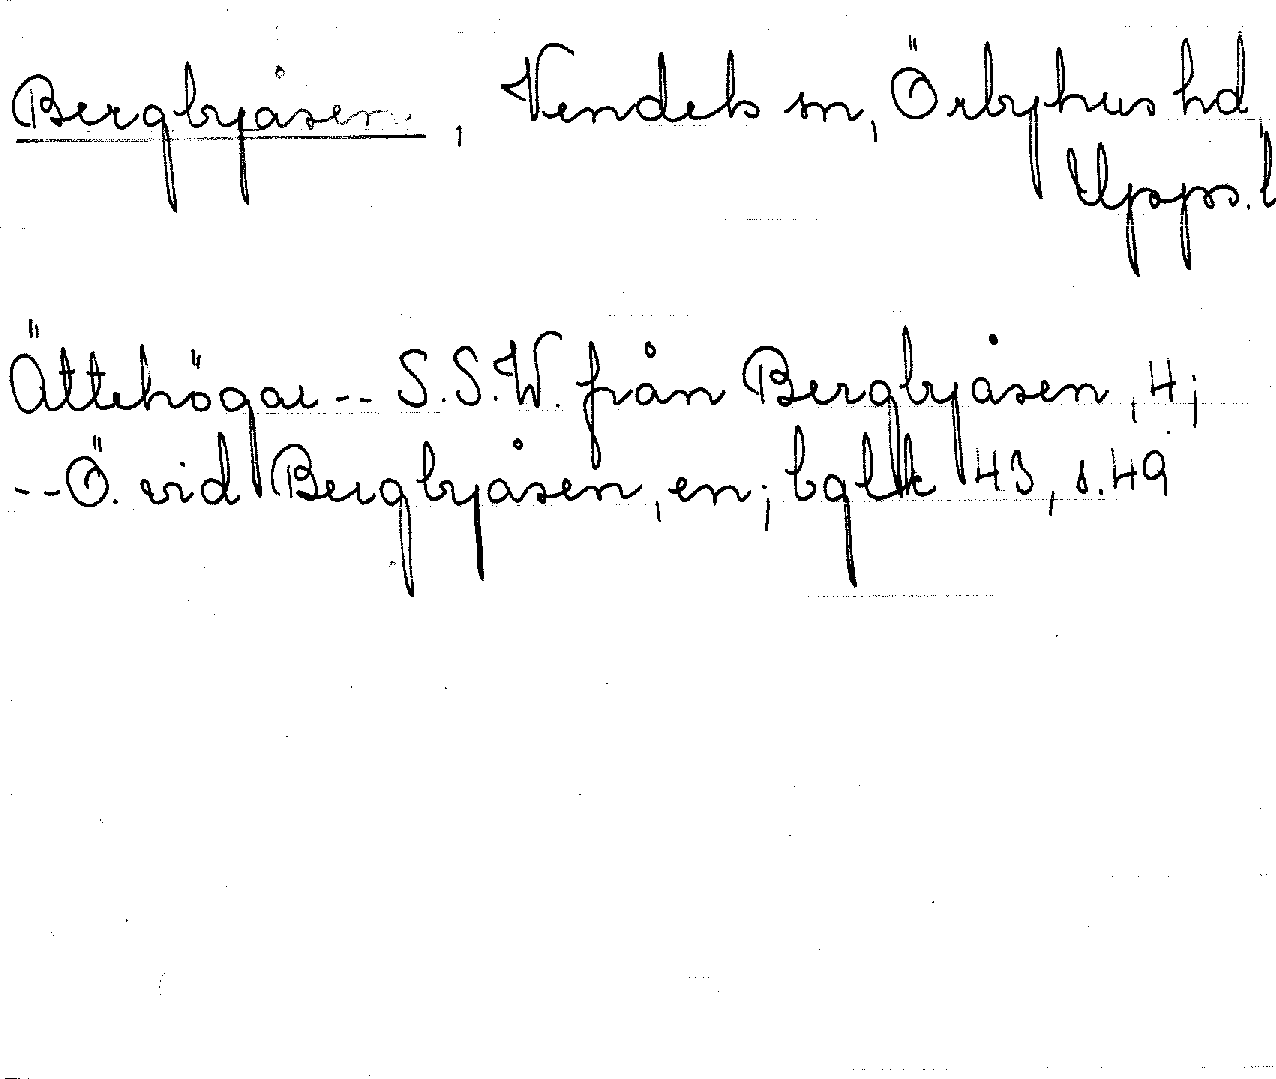 Bergbyåsen, Vendels sn, Örbyhus hd,
Upps. l
Ättehögar -- S.S.W. från Bergbyåsen, 4;
-- Ö. vid Bergbyåsen, en; bglk 43, s. 49